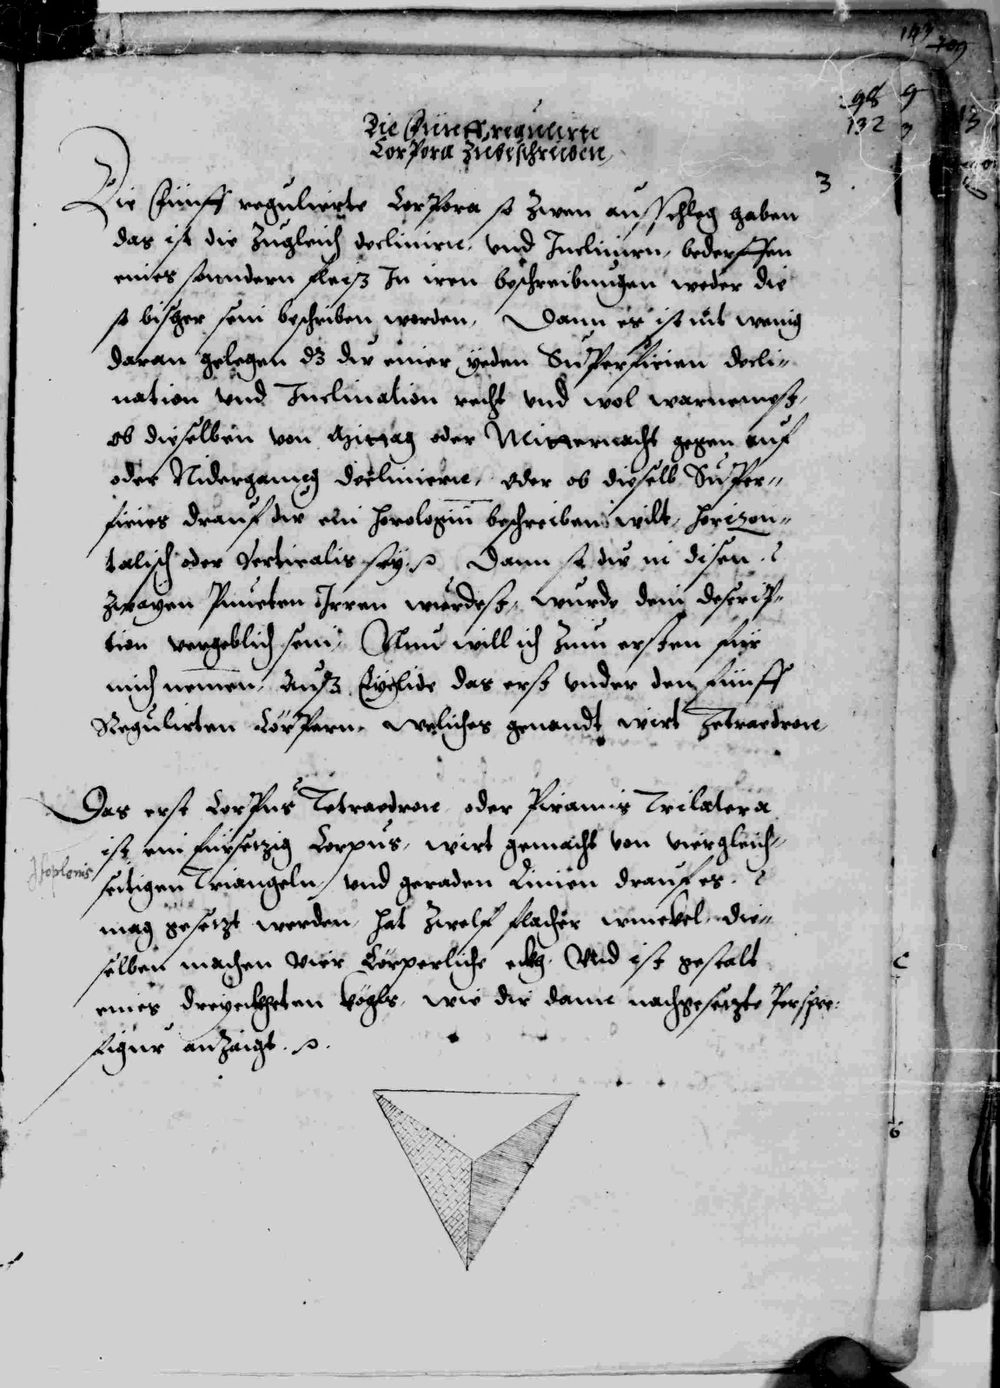 Die Fünff regulirte
Corpora zubeschreiben
3
98 9
132 3
Die Fünff regulierte Corpora so zwen ausschleg haben
das ist die zugleich declinirn, vnd Inclinirn, bederffen
eines sonndern fleis In iren beschreibungen weder die
so bisher sein beschriben worden, Dann es ist nit wenig
daran gelegen dz du einer yeden Superficien decli-
nation vnd Inclination recht vnd wol warnemest,
ob dieselben von Mittag oder Mitternacht gegen auf
oder Nidergang decliniern, oder ob dieselb Super-
ficies drauf du ein horologium beschreiben wilt, horizon-
talisch oder Verticalis sey. Dann so du in disen
zwayen Puncten Irren wurdest, wurde dein descrip-
tion vergeblich sein, Nun will ich zum ersten für
mich nemen, Ausz Euclide das erst vnder den fünff
Regulirten Cörpern, weliches genandt wirt Tetraedron,
Das erst Corpus Tetraedron oder Piramis Trilatera
ist ein fürsetzig Corpus, wirt gemacht von viergleich-
seitigen Trianglen, vnd geraden Linien drauf es
mag gesetzt werden, hat zwelf flacher winckel, die-
selben machen vier Cörperliche eckh, Vnd ist gestalt
eines dreyeckheten kögls, wie dir dann nachgesetzte Perspec:
figur anzaigt.